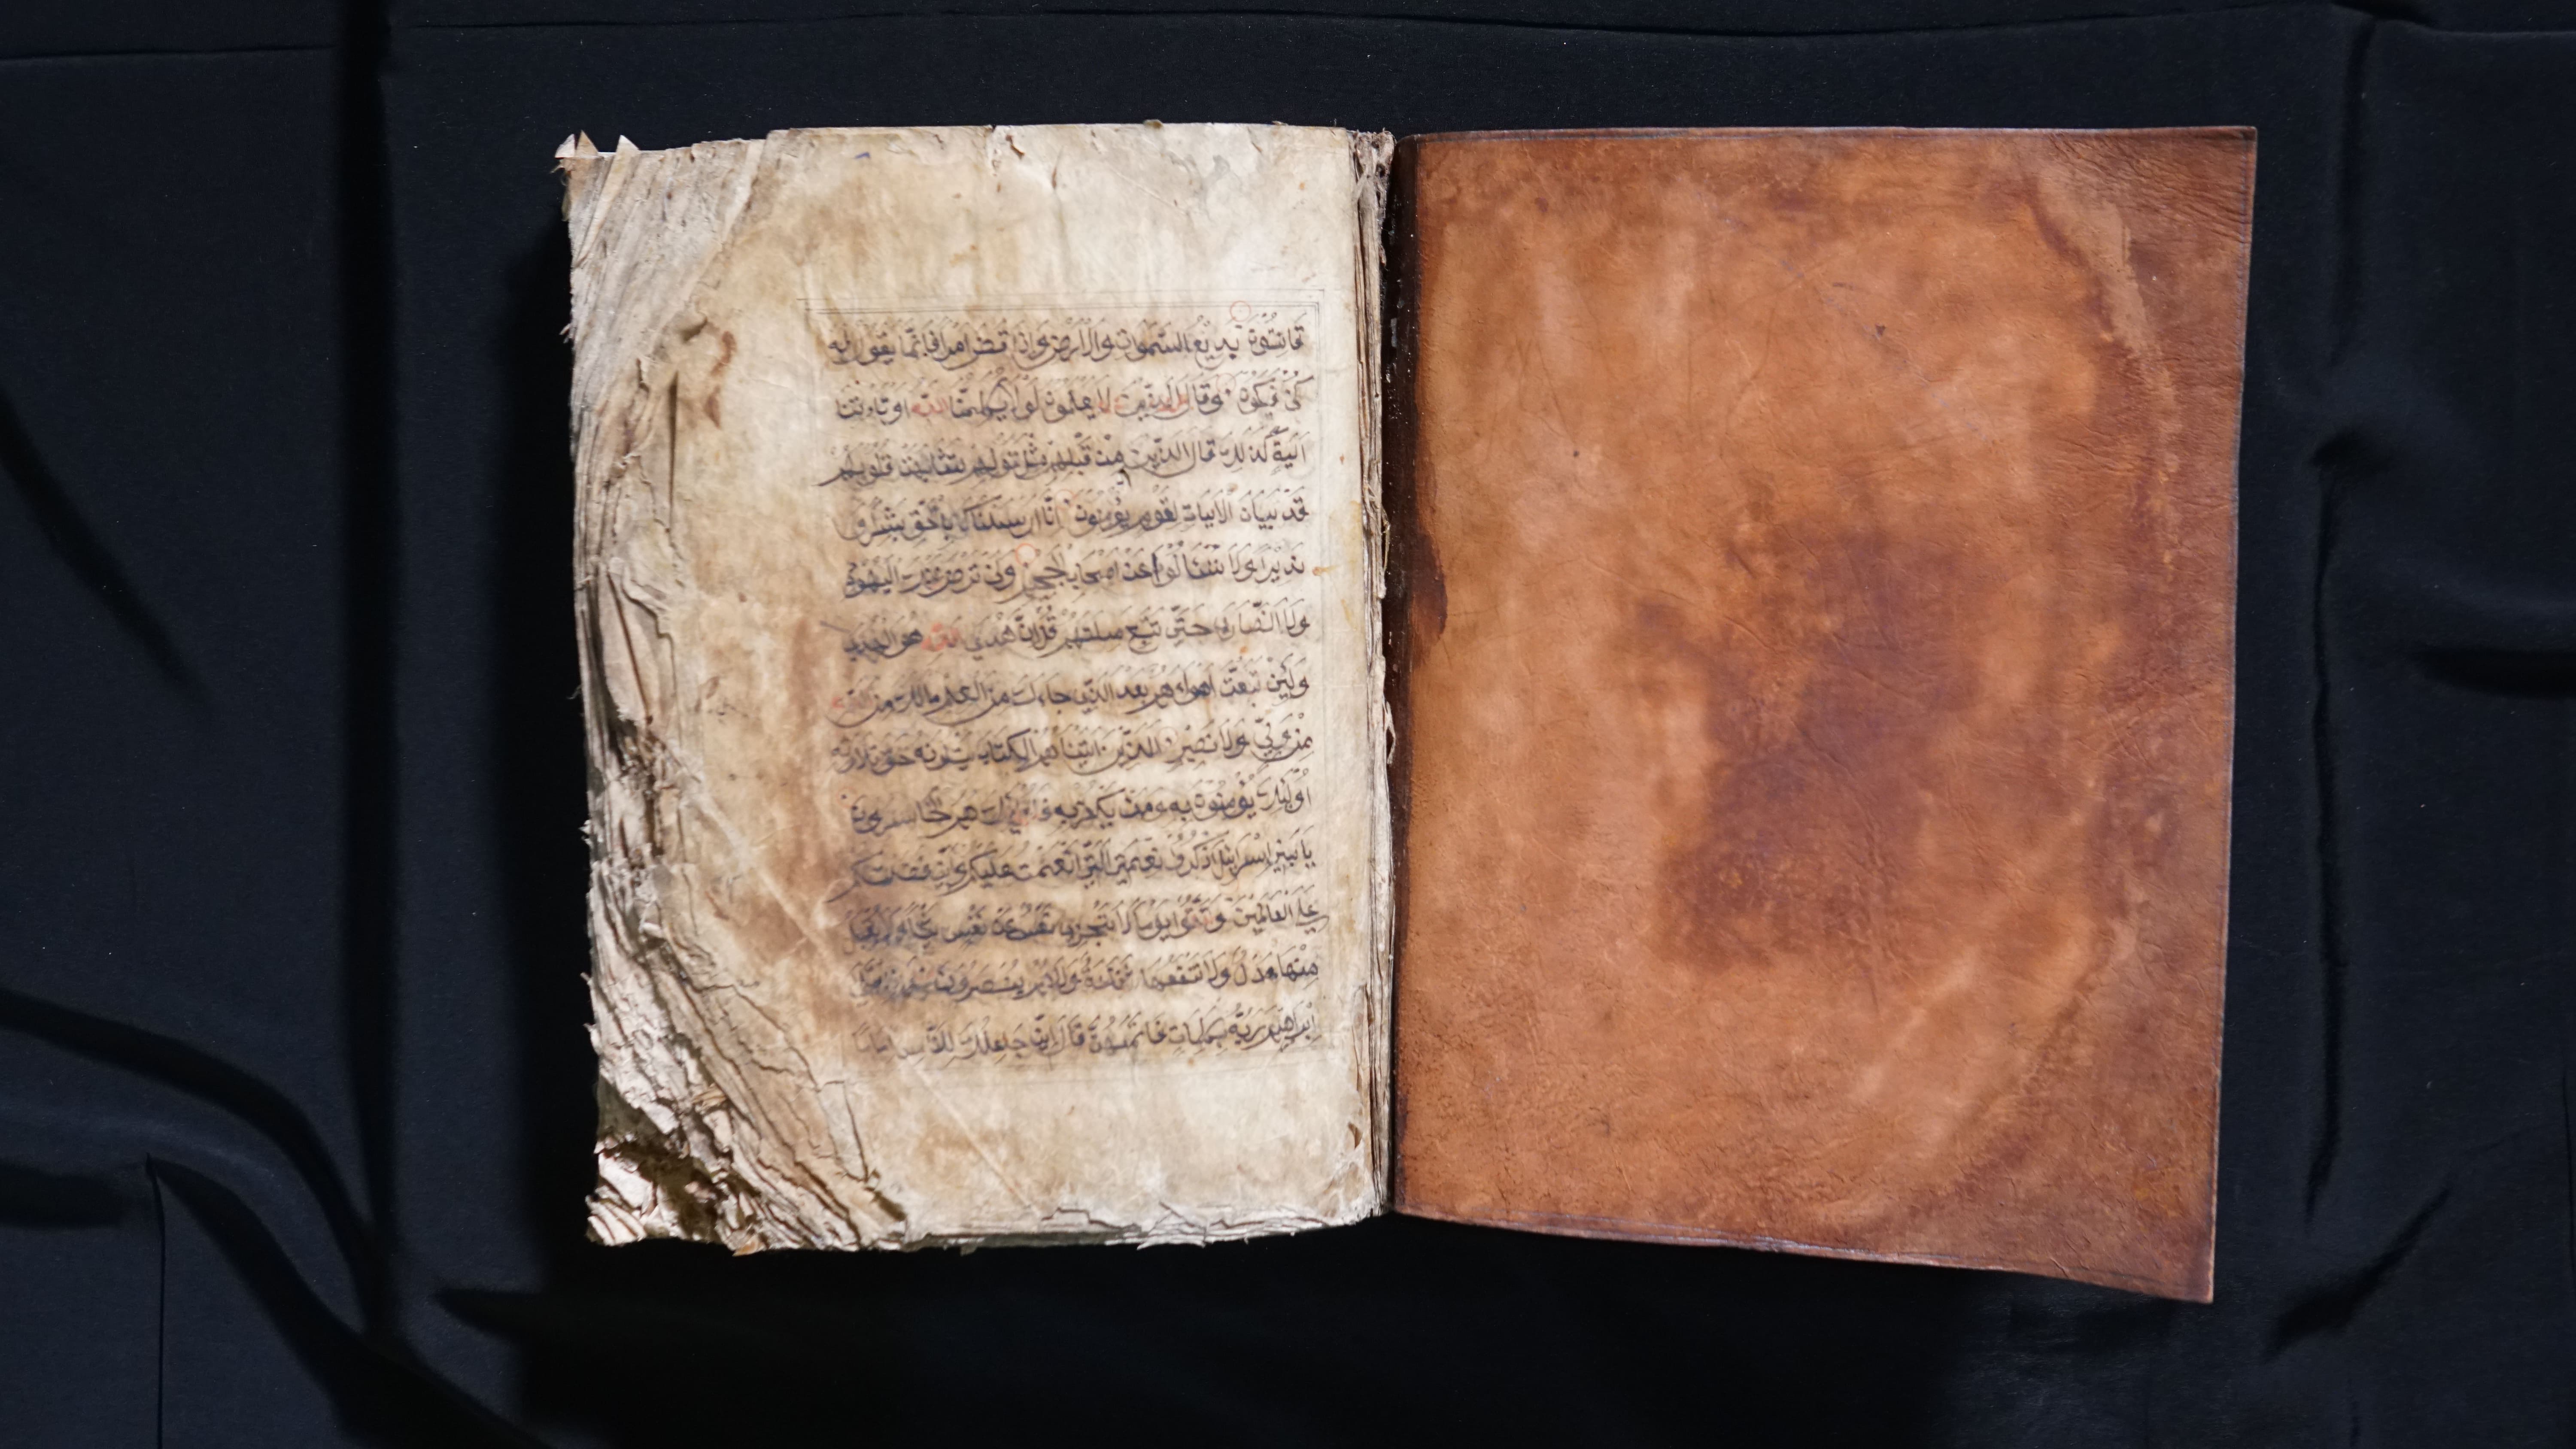 قانتون بديع السموات والارض واذا قضى امرا فانما يقول له
كن فيكون وقال الذين لا يعلمون لولا يكلمنا الله او تاءتينا
اية كذلك قال الذين من قبلهم مثل قولهم تشابهت قلوبهم
قد بينا الايات لقوم يوقنون انا ارسلناك بالحق بشيرا و
نذيرا ولا تسئل عن اصحاب الجحيم ولن ترضى عنك اليهود
ولا النصارى حتى تتبع ملتهم قل ان هدى الله هو الهدى
ولئن تبعت اهواءهم بعد الذي جاءك من العلم مالك من الله
من ولي ولا نصير الذين اتيناهم الكتاب يتلونه حق تلاوته
اولئك يؤمنون به ومن يكفر به فاولئك هم الخاسرون
يا بني اسرائيل اذكروا نعمتي التي انعمت عليكم واني فضلتكم
على العالمين واتقوا يوما لا تجزي نفس عن نفس شيئا ولا يقبل
منها عدل ولا تنفعها شفاعة ولا هم ينصرون
ابراهيم ربه بكلمات فاتمهن قال اني جاعلك للناس اماما